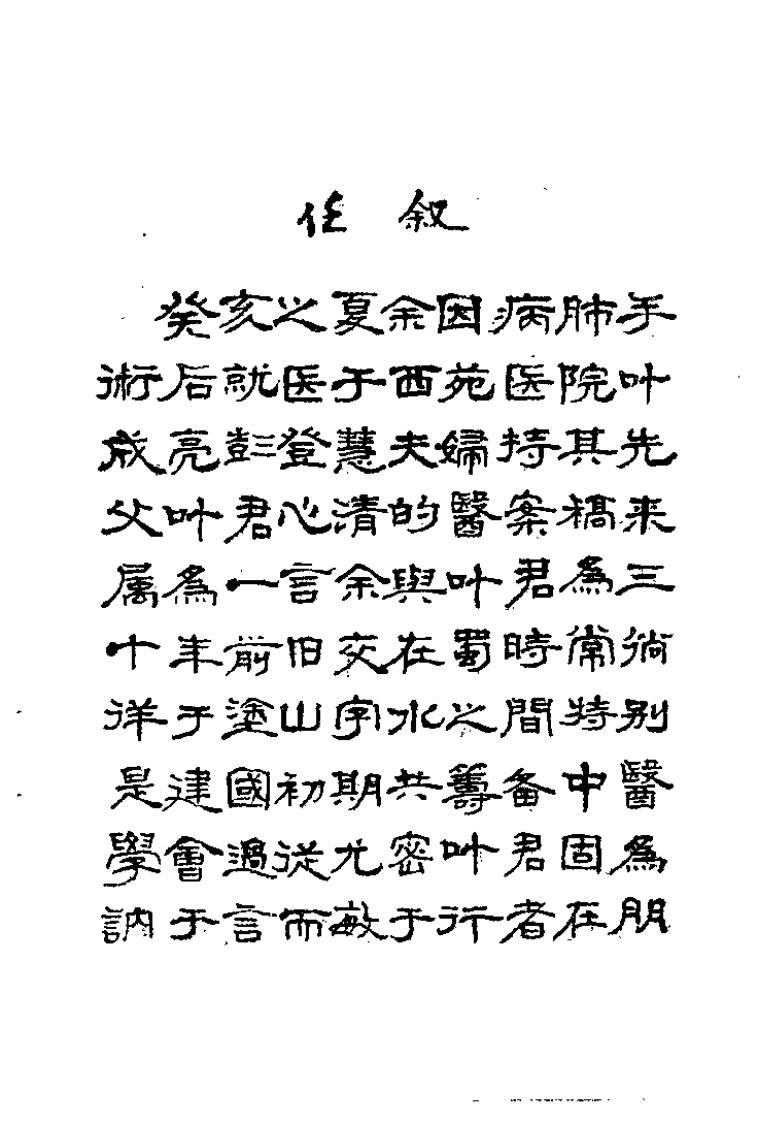 任叙
癸亥之夏余因病肺手
術后就医于西苑医院叶
成亮彭登慧夫婦持其先
父叶君心清的醫案稿来
属為一言余與叶君為三
十年前旧交在蜀時常徜
徉于塗山字水之間特别
是建國初期共籌备中醫
學會過從尤密叶君固為
訥于言而敏于行者在朋